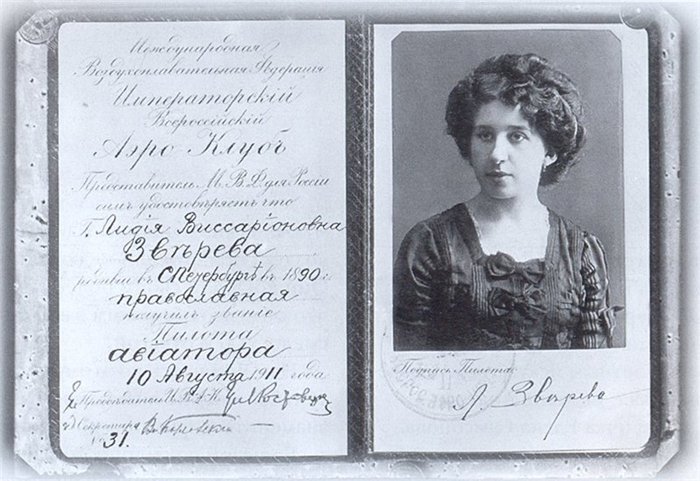 Международная
Воздухоплавательная Федерація
Императорскій
Всероссійскій
Аэро Клубъ
Представитель М. В. Ф. для Россіи
симъ удостовѣряетъ что
Г. Лидія Виссаріоновна
Звѣрева
родивш въ С Петербургѣ въ 1890 г.
православная
получилъ званіе
Пилота
авіатора
10 Августа 1911 года
Секретарь
№ 31.
Подпись Пилота:
Л. Звѣрева